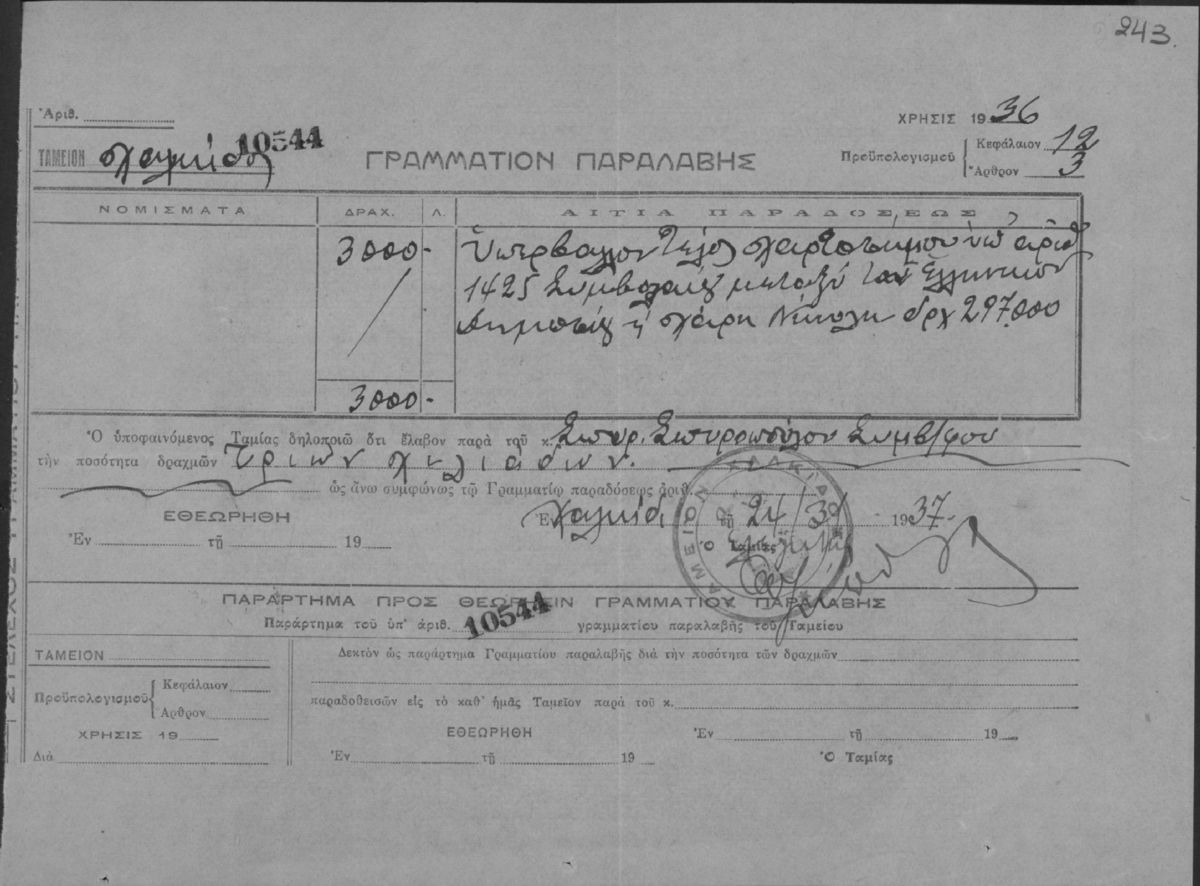 243.
Ἀριθ.
10544
ΤΑΜΕΙΟΝ Χαλκίδος
ΓΡΑΜΜΑΤΙΟΝ ΠΑΡΑΛΑΒΗΣ
ΧΡΗΣΙΣ 1936
Προϋπολογισμοῦ { Κεφάλαιον 12
Ἄρθρον 3
ΝΟΜΙΣΜΑΤΑ ΔΡΑΧ. Λ. ΑΙΤΙΑ ΠΑΡΑΔΟΣΕΩΣ
3000- Ὑπερβάλλον τέλος χαρτοσήμου ὑπ' ἀριθ
1425 Συμβολαίου μεταξὺ
δρχ 297.000
3000-
Ὁ ὑποφαινόμενος Ταμίας δηλοποιῶ ὅτι ἔλαβον παρὰ τοῦ κ. Σπυρ. Σπυροπούλου Συμβ/φου
τὴν ποσότητα δραχμῶν τριῶν χιλιάδων.
ὡς ἄνω συμφώνως τῷ Γραμματίῳ παραδόσεως ἀριθ.
ΕΘΕΩΡΗΘΗ
Ἐν Χαλκίδι τῇ 24/3/ 1937.
Ἐν τῇ 19
Ὁ Ταμίας
ΤΑΜΕΙΟΝ ΧΑΛΚΙΔΟΣ
ΠΑΡΑΡΤΗΜΑ ΠΡΟΣ ΘΕΩΡΗΣΙΝ ΓΡΑΜΜΑΤΙΟΥ ΠΑΡΑΛΑΒΗΣ
Παράρτημα τοῦ ὑπ' ἀριθ. 10544 γραμματίου παραλαβῆς τοῦ Ταμείου
ΤΑΜΕΙΟΝ
Δεκτὸν ὡς παράρτημα Γραμματίου παραλαβῆς διὰ τὴν ποσότητα τῶν δραχμῶν
Προϋπολογισμοῦ { Κεφάλαιον
Ἄρθρον
παραδοθεισῶν εἰς τὸ καθ' ἡμᾶς Ταμεῖον παρὰ τοῦ κ.
ΧΡΗΣΙΣ 19
ΕΘΕΩΡΗΘΗ
Ἐν τῇ 19
Διά
Ἐν τῇ 19
Ὁ Ταμίας